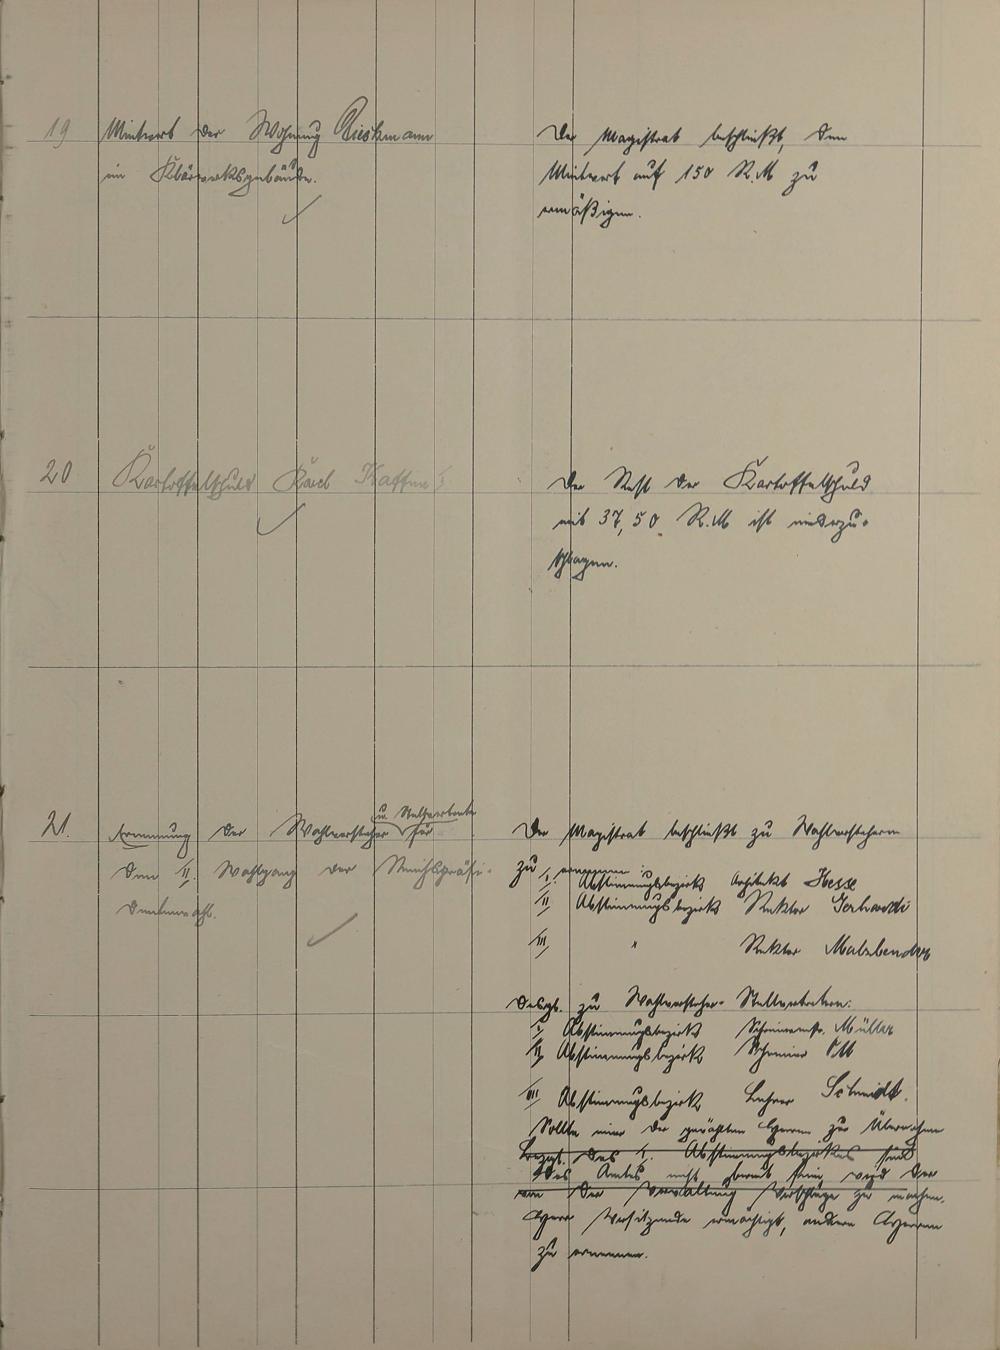 19 Mietwert der Wohnung Dieckmann
im Klärwerksgebäude.
Der Magistrat beschließt, den
Mietwert auf 150 R.M zu
ermäßigen.
20 Kartoffelschuld Karl
Der Rest der Kartoffelschuld
mit 37,50 R.M ist niederzu-
schlagen.
21. Ernennung der Wahlvorsteher u. Stellvertreter für
den II. Wahlgang der Reichspräsi-
dentenwahl.
Der Magistrat beschließt zu Wahlvorstehern
zu ernennen:
I. Abstimmungsbezirk Architekt Hesse
II Abstimmungsbezirk Rektor Gerhardi
III " Rektor Malzbender
Desgl. zu Wahlvorsteher-Stellvertretern:
I Abstimmungsbezirk Schreinermstr. Müller
II Abstimmungsbezirk Schreiner Ott
III Abstimmungsbezirk Lehrer Schmidt.
Sollte einer der gewählten Herren zur Übernahme
Bezgl. des I. Abstimmungsbezirkes sind
des Amtes nicht bereit sein, wird der
von der Verwaltung Vorschläge zu machen.
Herr Vorsitzende ermächtigt, andere Herren
zu ernennen.